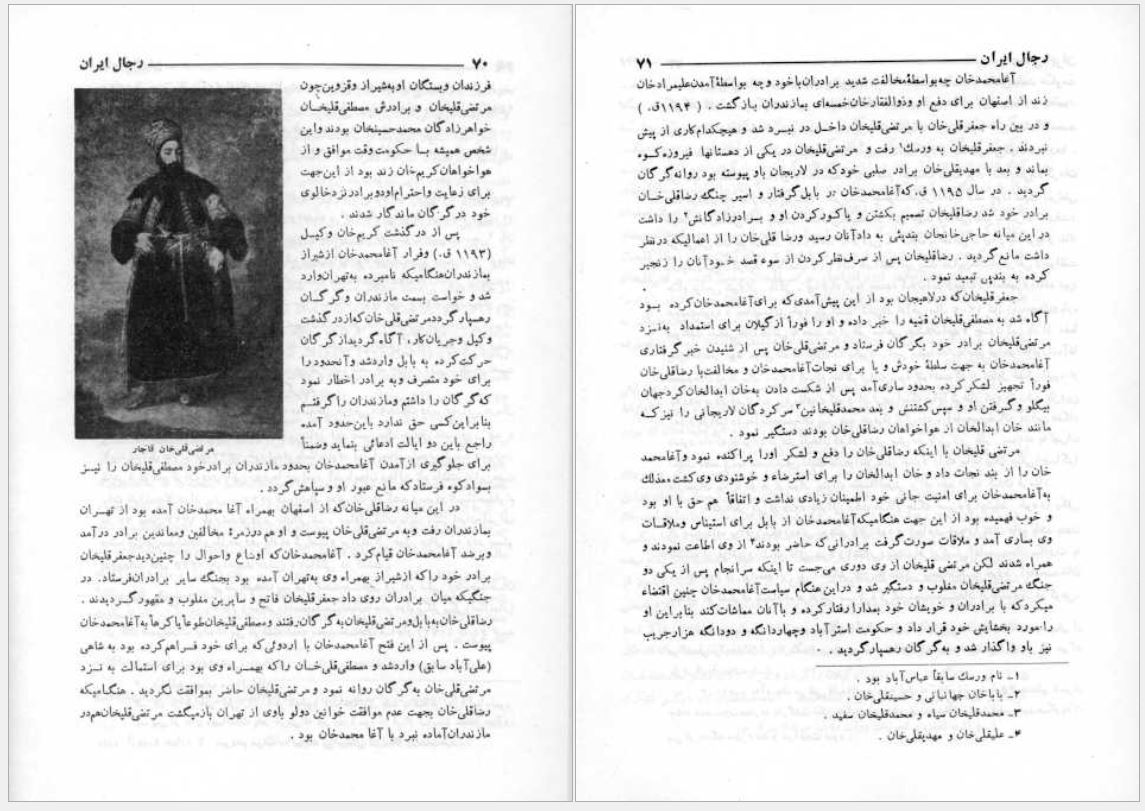 ۷۰ رجال ایران
فرزندان وبستگان اوبه‌شیراز وقزوین‌چون
مرتضی‌قلیخان و برادرش مصطفی‌قلیخان
خواهرزادگان محمدحسینخان بودند واین
شخص همیشه با حکومت‌وقت موافق و از
هواخواهان‌کریم‌خان زند بود از این‌جهت
برای رعایت واحترام‌اودوبرادرنزدخالوی
خود درگرگان ماندگار شدند .
پس از درگذشت کریم‌خان وکیل
(۱۱۹۳ ق.) وفرار آغامحمدخان ازشیراز
بمازندران‌هنگامیکه نامبرده به‌تهران‌وارد
شد و خواست بسمت مازندران وگرگان
رهسپارگرددمرتضی‌قلی‌خان‌که‌ازدرگذشت
وکیل وجریان‌کار، آگاه‌گردیدازگرگان
حرکت‌کرده به بابل واردشد وآنحدودرا
برای خود متصرف وبه برادر اخطار نمود
که‌گرگان را داشتم ومازندران راگرفتم
بنابراین‌کسی حق ندارد باین‌حدود آمده
راجع باین دو ایالت ادعائی بنماید وضمناً
مرتضی‌قلی‌خان قاجار
برای جلوگیری ازآمدن آغامحمدخان بحدود مازندران برادرخود مصطفی‌قلیخان را نیز
بسوادکوه فرستادکه مانع عبور او و سپاهش‌گردد .
در این میانه رضاقلی‌خان‌که از اصفهان بهمراه آغا محمدخان آمده بود از تهران
بمازندران رفت وبه مرتضی‌قلی‌خان پیوست و اوهم درزمرهٔ مخالفین ومعاندین برادر درآمد
وبرضد آغامحمدخان قیام‌کرد . آغامحمدخان‌که اوضاع واحوال را چنین‌دیدجعفرقلیخان
برادر خود راکه ازشیراز بهمراه وی به‌تهران آمده بود بجنگ سایر برادران‌فرستاد. در
جنگیکه میان برادران روی داد جعفرقلیخان فاتح و سایرین مغلوب و مقهور گردیدند .
رضاقلی‌خان‌به‌بابل‌ومرتضی‌قلیخان‌به‌گرگان‌رفتند ومصطفی‌قلیخان‌طوعاً یاکرهاً به‌آغامحمدخان
پیوست . پس از این فتح آغامحمدخان با اردوئی‌که برای خود فراهم‌کرده بود به شاهی
(علی‌آباد سابق) واردشد و مصطفی‌قلی‌خان راکه بهمراه وی بود برای استمالت به نزد
مرتضی‌قلی‌خان به‌گرگان روانه نمود و مرتضی‌قلیخان حاضر بموافقت نگردید . هنگامیکه
رضاقلی‌خان بجهت عدم موافقت خوانین دولو باوی از تهران بازمیگشت مرتضی‌قلیخان‌هم‌در
مازندران‌آماده نبرد با آغا محمدخان بود .
رجال ایران ۷۱
آغامحمدخان چه‌بواسطهٔ‌مخالفت شدید برادران‌باخود وچه بواسطهٔ‌آمدن‌علیمرادخان
زند از اصفهان برای دفع او وذوالفقارخان‌خمسه‌ای بمازندران بازگشت . ( ۱۱۹۴ق. )
و در بین راه جعفرقلی‌خان با مرتضی‌قلیخان داخل در نبرد شد و هیچکدام‌کاری از پیش
نبردند . جعفرقلیخان به ورسک۱ رفت و مرتضی‌قلیخان در یکی از دهستانها فیروزه‌کوه
بماند و بعد با مهدیقلی‌خان برادر صلبی خودکه در لاریجان باو پیوسته بود روانه‌گرگان
گردید . در سال ۱۱۹۵ ق.که‌آغامحمدخان در بابل‌گرفتار و اسیر چنگ رضاقلی‌خان
برادر خود شد رضاقلیخان تصمیم بکشتن و یاکورکردن او و برادرزادگانش۲ را داشت
دراین میانه حاجی‌خانجان بندپئی به دادآنان رسید ورضا قلی‌خان را از اعمالیکه درنظر
داشت مانع‌گردید . رضاقلیخان پس از صرف‌نظرکردن از سوء قصد خودآنان را زنجیر
کرده به بندپی تبعید نمود .
جعفرقلیخان‌که درلاهیجان بود از این پیش‌آمدی‌که برای‌آغامحمدخان‌کرده بود
آگاه شد به مصطفی‌قلیخان قضیه را خبر داده و او را فوراً ازگیلان برای استمداد به‌نزد
مرتضی‌قلیخان برادر خود بگرگان فرستاد و مرتضی‌قلی‌خان پس از شنیدن خبرگرفتاری
آغامحمدخان به جهت سلطهٔ خودش و یا برای نجات‌آغامحمدخان و مخالفت‌با رضاقلی‌خان
فوراً تجهیز لشکرکرده بحدود ساری‌آمد پس از شکست دادن به‌خان ابدالخان‌کردجهان
بیگلو وگرفتن او و سپس‌کشتنش و بعد محمدقلیخانین۳ سرکردگان لاریجانی را نیزکه
مانند خان ابدالخان از هواخواهان رضاقلی‌خان بودند دستگیر نمود .
مرتضی قلیخان با اینکه رضاقلی‌خان را دفع و لشکر اورا پراکنده نمود وآغامحمد
خان را از بند نجات داد و خان ابدالخان را برای استرضاء و خوشنودی وی‌کشت معذلک
به‌آغامحمدخان برای امنیت جانی خود اطمینان زیادی نداشت و اتفاقاً هم حق با او بود
و خوب فهمیده بود از این جهت هنگامیکه‌آغامحمدخان از بابل برای استیناس وملاقات
وی بساری آمد و ملاقات صورت‌گرفت برادرانی‌که حاضر بودند۴ از وی اطاعت نمودند و
همراه شدند لکن مرتضی قلیخان از وی دوری می‌جست تا اینکه سرانجام پس از یکی دو
جنگ مرتضی‌قلیخان مغلوب و دستگیر شد و دراین‌هنگام سیاست‌آغامحمدخان چنین اقتضاء
میکردکه با برادران و خویشان خود بمدارا رفتارکرده و باآنان مماشات‌کند بنابراین او
را مورد بخشایش خود قرار داد و حکومت استرآباد وچهاردانگه و دودانگه هزارجریب
نیز باو واگذار شد و به‌گرگان رهسپارگردید .
۱ـ نام ورسک سابقاً عباس‌آباد بود .
۲ـ باباخان جهانبانی و حسینقلی‌خان .
۳ـ محمدقلیخان سیاه و محمدقلیخان سفید .
۴ـ علیقلی‌خان و مهدیقلی‌خان .